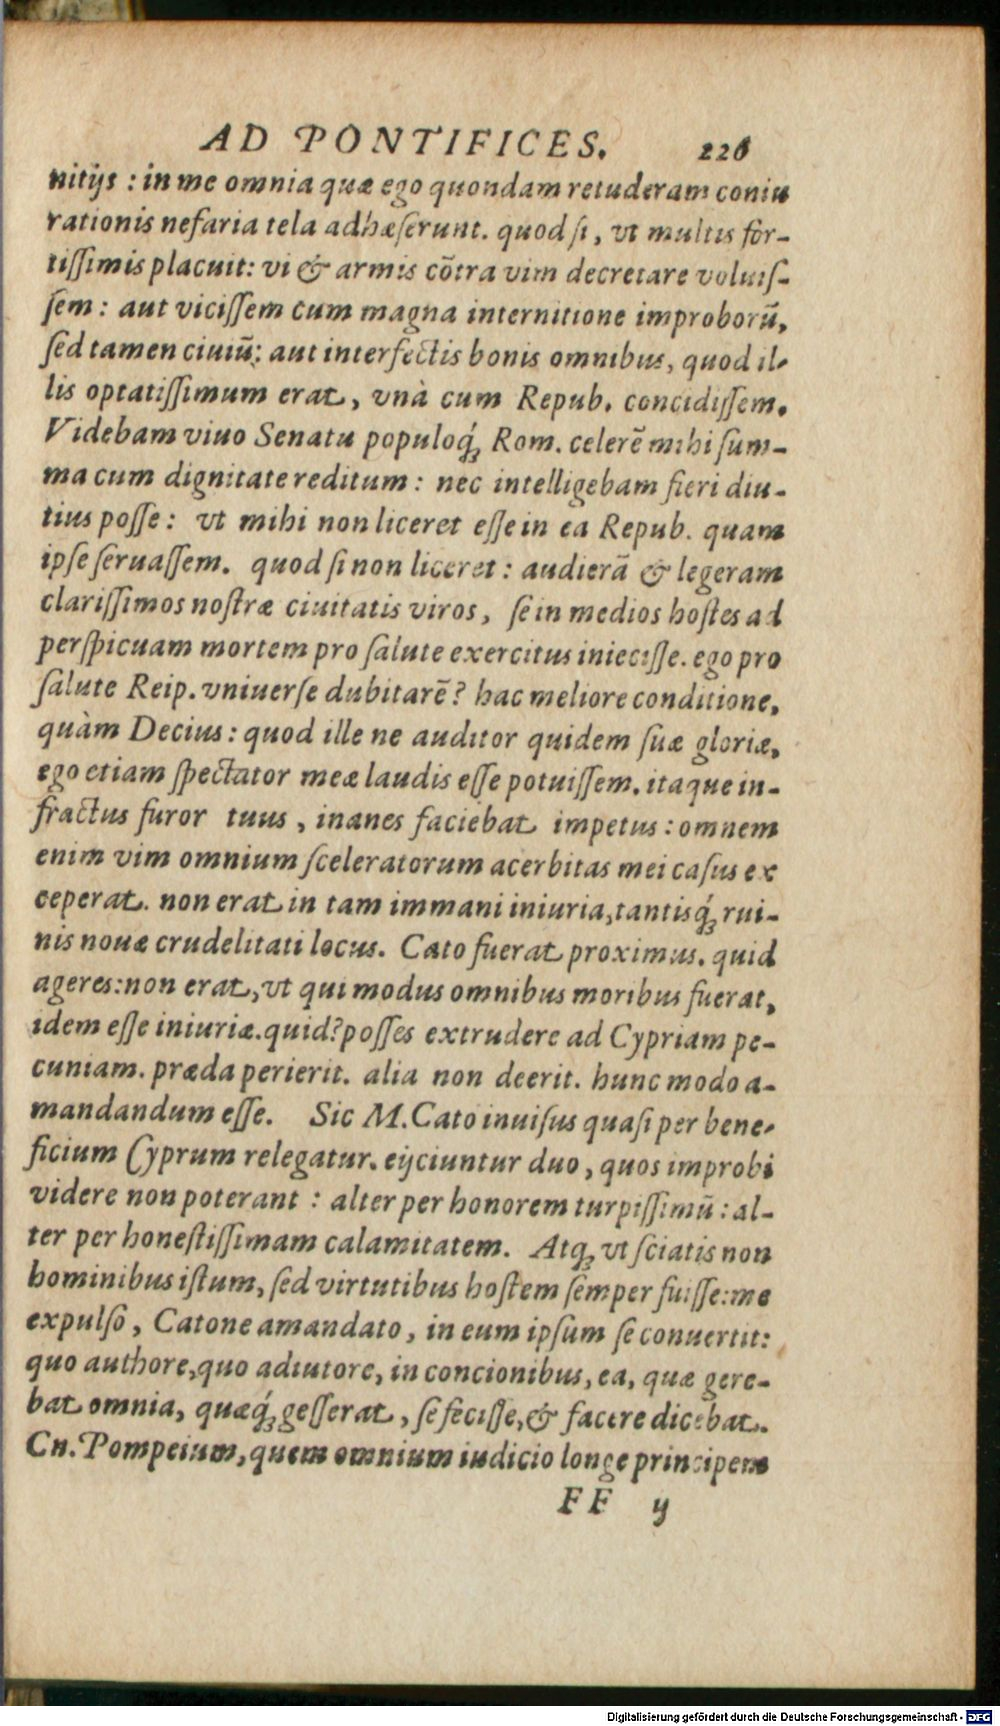 AD PONTIFICES. 226
nitijs : in me omnia quæ ego quondam retuderam coniu
rationis nefaria tela adhæserunt. quod si, vt multis for-
tissimis placuit: vi & armis cõtra vim decretare voluis-
sem : aut vicissem cum magna internitione improborũ,
sed tamen ciuiũ; aut interfectis bonis omnibus, quod il-
lis optatissimum erat, vnà cum Repub. concidissem.
Videbam viuo Senatu populoq́; Rom. celerẽ mihi sum-
ma cum dignitate reditum : nec intelligebam fieri diu-
tius posse : vt mihi non liceret esse in ea Repub. quam
ipse seruassem. quod si non liceret : audierã & legeram
clarissimos nostræ ciuitatis viros, se in medios hostes ad
perspicuam mortem pro salute exercitus iniecisse. ego pro
salute Reip. vniuerse dubitarẽ? hac meliore conditione,
quàm Decius : quod ille ne auditor quidem suæ gloriæ,
ego etiam spectator meæ laudis esse potuissem. itaque in-
fractus furor tuus, inanes faciebat impetus : omnem
enim vim omnium sceleratorum acerbitas mei casus ex
ceperat. non erat in tam immani iniuria, tantisq́; rui-
nis nouæ crudelitati locus. Cato fuerat proximus. quid
ageres: non erat, vt qui modus omnibus moribus fuerat,
idem esse iniuriæ. quid? posses extrudere ad Cypriam pe-
cuniam. præda perierit. alia non deerit. hunc modo a-
mandandum esse. Sic M. Cato inuisus quasi per bene-
ficium Cyprum relegatur. eijciuntur duo, quos improbi
videre non poterant : alter per honorem turpissimũ : al-
ter per honestissimam calamitatem. Atq; vt sciatis non
hominibus istum, sed virtutibus hostem semper fuisse: me
expulso, Catone amandato, in eum ipsum se conuertit:
quo authore, quo adiutore, in concionibus, ea, quæ gere-
bat omnia, quæq́; gesserat, se fecisse, & facere dicebat.
Cn. Pompeium, quem omnium iudicio longe principem
FF ij
Digitalisierung gefördert durch die Deutsche Forschungsgemeinschaft - DFG